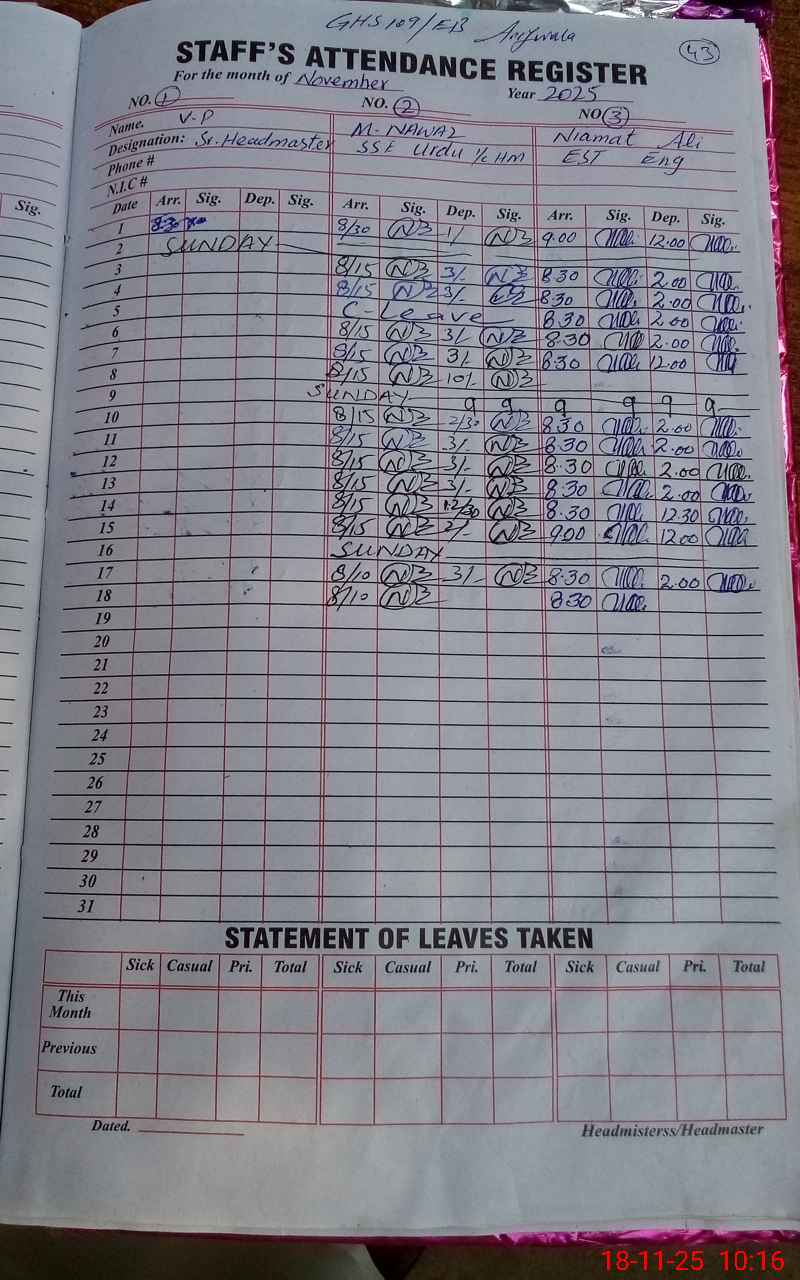 GHS 109/EB Arifwala
43
STAFF'S ATTENDANCE REGISTER
For the month of November Year 2025
NO. 1 NO. 2 NO 3
Name. V-P M. NAWAZ Niamat Ali
Designation: Sr. Headmaster SSE Urdu I/C HM EST Eng
Phone #
N.I.C #
Sig.
Date Arr. Sig. Dep. Sig. Arr. Sig. Dep. Sig. Arr. Sig. Dep. Sig.
1 8/30 1/ 9.00 12.00
2 SUNDAY
3 8/15 3/. 8.30 2.00
4 8/15 3/. 8.30 2.00
5 C-Leave 8.30 2.00
6 8/15 3/. 8.30 2.00
7 8/15 3/. 8.30 12.00
8 8/15 10/.
9 SUNDAY 9 9 9 9 9 9
10 8/15 2/30 8.30 2.00
11 8/15 3/. 8.30 2.00
12 8/15 3/. 8.30 2.00
13 8/15 3/. 8.30 2.00
14 8/15 12/30 8.30 12.30
15 8/15 2/- 9.00 12.00
16 SUNDAY
17 8/10 3/- 8.30 2.00
18 8/10 8.30
19
20
21
22
23
24
25
26
27
28
29
30
31
STATEMENT OF LEAVES TAKEN
Sick Casual Pri. Total Sick Casual Pri. Total Sick Casual Pri. Total
This Month
Previous
Total
Dated. Headmisterss/Headmaster
18-11-25 10:16